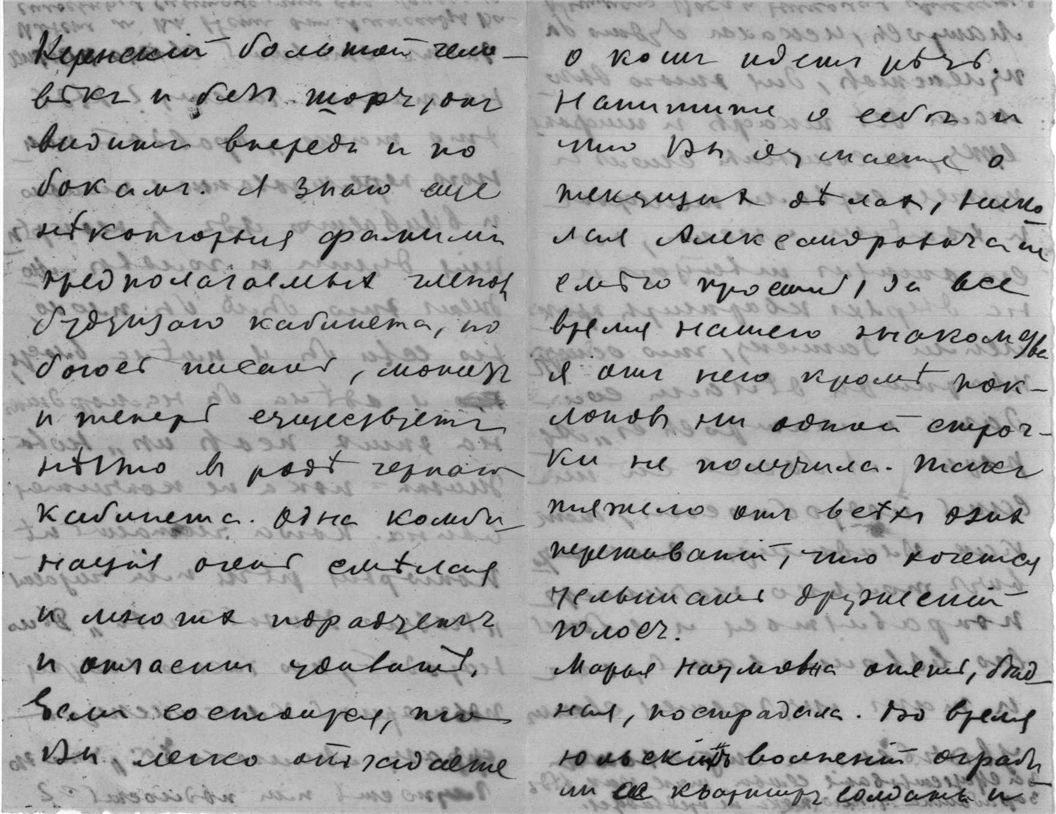 Керенскій большой чело-
вѣкъ и безъ шоръ, онъ
видитъ впередъ и по
бокамъ. Я знаю еще
нѣкоторыя фамиліи
предполагаемыхъ членовъ
будущаго кабинета, но
боюсь писать, можетъ
и теперь существуетъ
нѣчто въ родѣ чернаго
кабинета. Одна комби-
нація очень смѣлая
и многихъ порадуетъ
и отчасти удивитъ.
Если состоится, то
Вы легко отгадаете
о комъ идетъ рѣчь.
Напишите о себѣ и
что Вы думаете о
текущихъ дѣлахъ, Нико-
лая Александровича не
смѣю просить, за все
время нашего знакомства
я отъ него кромѣ пок-
лоновъ ни одной строч-
ки не получила. Такъ
тяжело отъ всѣхъ этихъ
переживаній, что хочется
услышать дружескій
голосъ.
Марья Наумовна опять, бѣд-
ная, пострадала. Во время
юльскихъ волненій ограби-
ли ее квартиру солдаты и